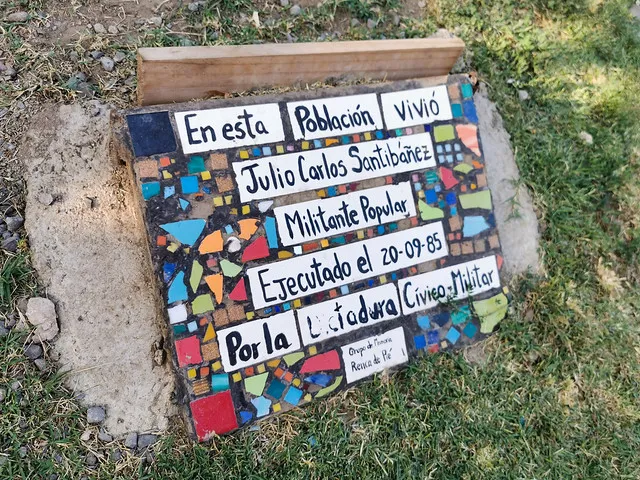 En esta Población Vivió
Julio Carlos Santibáñez
Militante Popular
Ejecutado el 20-09-85
Por la Dictadura Cívico-Militar
Grupo de Memoria
Renca de Pié